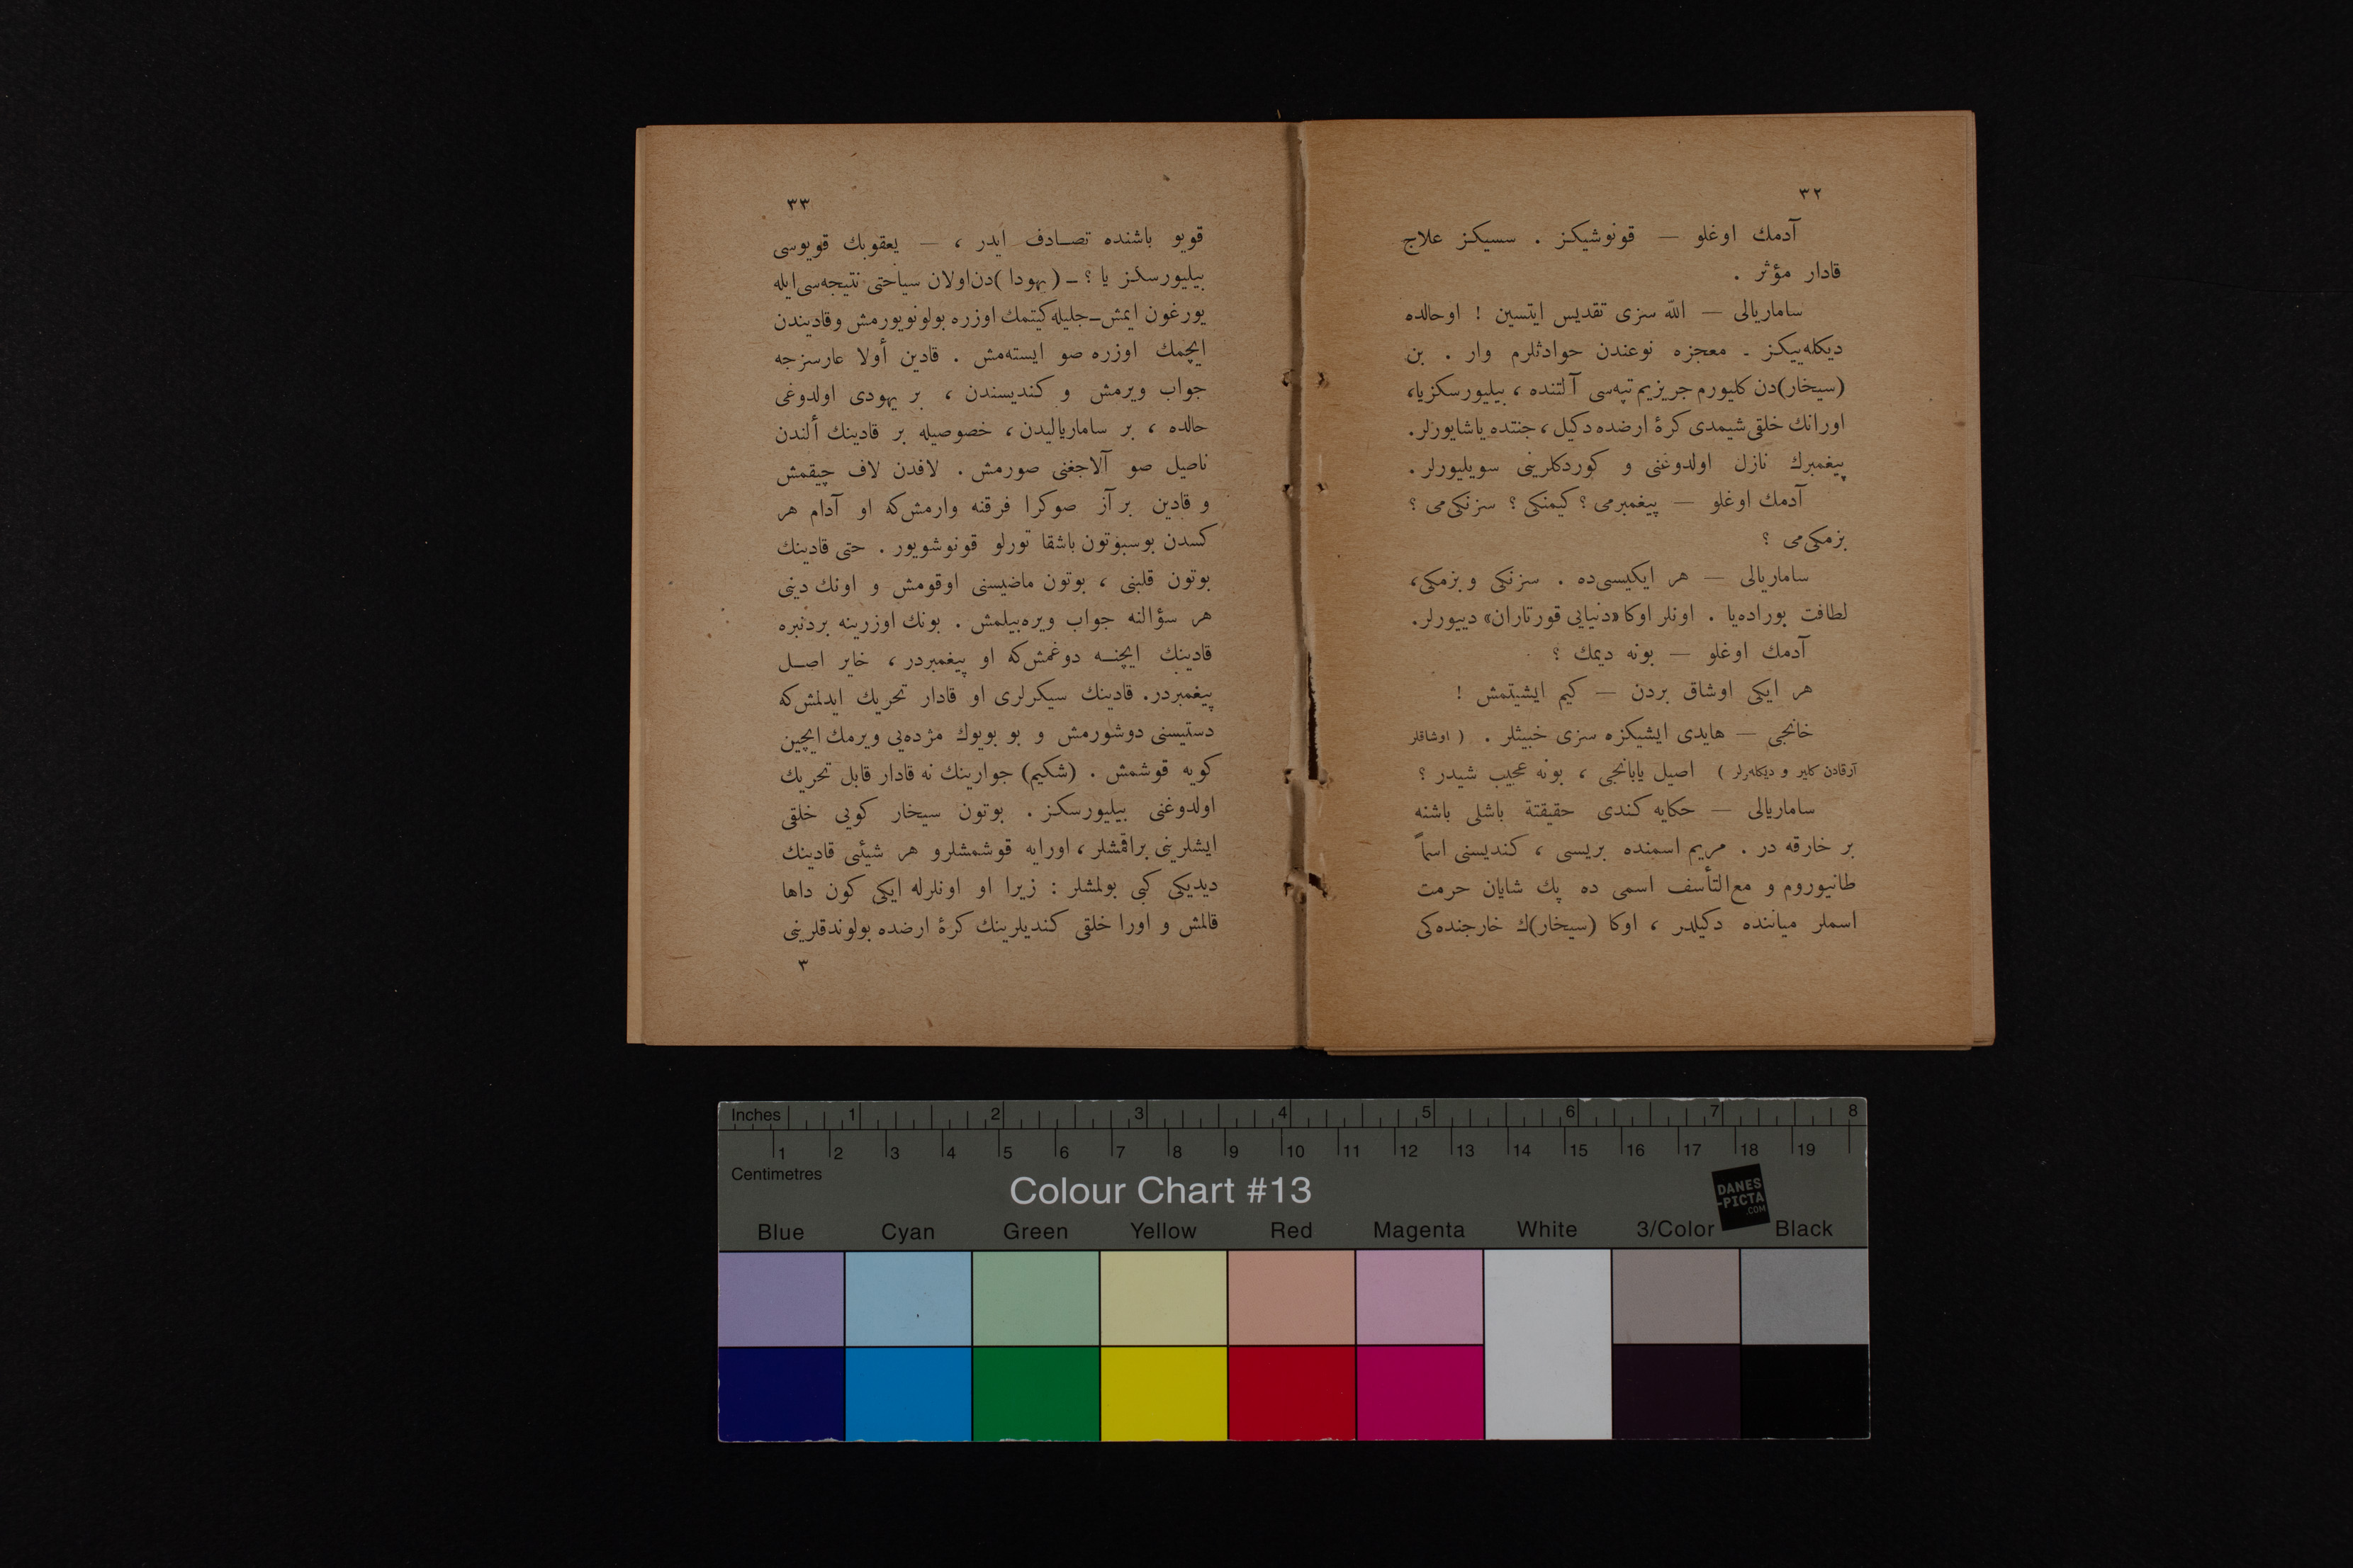 ٣٢
آدمك اوغلو — قونوشيكز . سسيكز علاج
قادار مؤثر .
ساماريالى — الله سزى تقديس ايتسين ! اوحالده
ديكله‌ييكز . معجزه نوعندن حوادثلرم وار . بن
(سيخار)دن كليورم جريزيم تپه‌سى آلتنده ، بيليورسكزيا،
اورانك خلقى شيمدى كرۀ ارضده دكيل ، جنتده ياشايورلر.
پيغمبرك نازل اولدوغنى و كوردكلرينى سويليورلر .
آدمك اوغلو — پيغمبرمى ؟ كيمنكى ؟ سزنكى‌مى ؟
بزمكى‌مى ؟
ساماريالى — هر ايكيسى‌ده . سزنكى و بزمكى،
لطافت بوراده‌يا . اونلر اوكا «دنيايى قورتاران» دييورلر.
آدمك اوغلو — بونه ديمك ؟
هر ايكى اوشاق بردن — كيم ايشيتمش !
خانجى — هايدى ايشيكزه سزى خبيثلر . ( اوشاقلر
آرقادن كلير و ديكله‌رلر ) اصيل يابانجى ، بونه عجيب شيدر ؟
ساماريالى — حكايه كندى حقيقتة باشلى باشنه
بر خارقه در . مريم اسمنده بريسى ، كنديسنى اسماً
طانيوروم و مع‌التأسف اسمى ده پك شايان حرمت
اسملر مياننده دكيلدر ، اوكا (سيخار)ك خارجنده‌كى
٣٣
قويو باشنده تصادف ايدر ، — يعقوبك قويوسى
بيليورسكز يا ؟ — (يهودا)دن‌اولان سياحتى نتيجه‌سى‌ايله
يورغون ايمش—جليله‌كيتمك اوزره بولونويورمش وقاديندن
ايچمك اوزره صو ايسته‌مش . قادين أولا عارسزجه
جواب ويرمش و كنديسندن ، بر يهودى اولدوغى
حالده ، بر ساماريالیدن ، خصوصيله بر قادينك ألندن
ناصيل صو آلاجغنى صورمش . لافدن لاف چيقمش
و قادين بر آز صوكرا فرقنه وارمش‌كه او آدام هر
كسدن بوسبوتون باشقا تورلو قونوشويور . حتى قادينك
بوتون قلبنى ، بوتون ماضيسنى اوقومش و اونك دينى
هر سؤالنه جواب ويره‌بيلمش . بونك اوزرينه بردنبره
قادينك ايچنه دوغمش‌كه او پيغمبردر ، خاير اصل
پيغمبردر. قادينك سيكرلرى او قادار تحريك ايدلمش‌كه
دستيسنى دوشورمش و بو بويوك مژده‌يى ويرمك ايچين
كويه قوشمش . (شكيم) جوارينك نه قادار قابل تحريك
اولدوغنى بيليورسكز . بوتون سيخار كويى خلقى
ايشلرينى براقمشلر ، اورايه قوشمشلرو هر شيئى قادينك
ديديكى كبى بولمشلر : زيرا او اونلرله ايكى كون داها
قالمش و اورا خلقى كنديلرينك كرۀ ارضده بولوندقلرينى
٣
Inches 1 2 3 4 5 6 7 8
1 2 3 4 5 6 7 8 9 10 11 12 13 14 15 16 17 18 19
Centimetres
Colour Chart #13
DANES
-PICTA
.COM
Blue Cyan Green Yellow Red Magenta White 3/Color Black